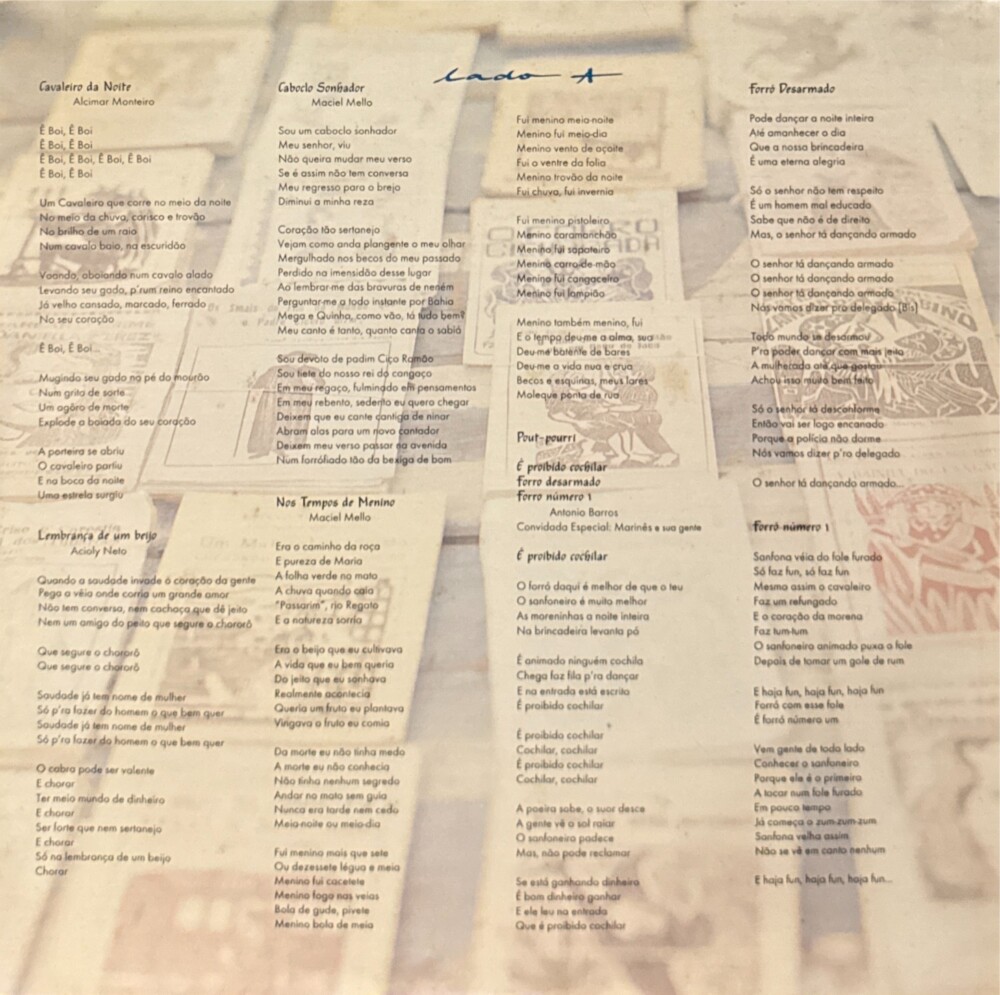 Lado A
Cavaleiro da Noite
Alcimar Monteiro
É Boi, É Boi
É Boi, É Boi
É Boi, É Boi, É Boi, É Boi
É Boi, É Boi
Um Cavaleiro que corre no meio da noite
No meio da chuva, corisco e trovão
No brilho de um raio
Num cavalo baio, na escuridão
Voando, aboiando num cavalo alado
Levando seu gado, p'rum reino encantado
Já velho cansado, marcado, ferrado
No seu coração
É Boi, É Boi...
Mugindo seu gado no pé do mourão
Num grito de sorte
Um agôro de morte
Explode a boiada do seu coração
A porteira se abriu
O cavaleiro partiu
E na boca da noite
Uma estrela surgiu
Lembrança de um beijo
Acioly Neto
Quando a saudade invade o coração da gente
Pega a véia onde corria um grande amor
Não tem conversa, nem cachaça que dê jeito
Nem um amigo do peito que segure o chororô
Que segure o chororô
Que segure o chororô
Saudade já tem nome de mulher
Só p'ra fazer do homem o que bem quer
Saudade já tem nome de mulher
Só p'ra fazer do homem o que bem quer
O cabra pode ser valente
E chorar
Ter meio mundo de dinheiro
E chorar
Ser forte que nem sertanejo
E chorar
Só na lembrança de um beijo
Chorar
Caboclo Sonhador
Maciel Mello
Sou um caboclo sonhador
Meu senhor, viu
Não queira mudar meu verso
Se é assim não tem conversa
Meu regresso para o brejo
Diminui a minha reza
Coração tão sertanejo
Vejam como anda plangente o meu olhar
Mergulhado nos becos do meu passado
Perdido na imensidão desse lugar
Ao lembrar-me das bravuras de neném
Perguntar-me a todo instante por Bahia
Mega e Quinha, como vão, tá tudo bem?
Meu canto é tanto, quanto canta o sabiá
Sou devoto de padim Ciço Romão
Sou tiete do nosso rei do cangaço
Em meu regaço, fulminado em pensamentos
Em meu rebento, sedento eu quero chegar
Deixem que eu cante cantiga de ninar
Abram alas para um novo cantador
Deixem meu verso passar na avenida
Num forrófiado tão da bexiga de bom
Nos Tempos de Menino
Maciel Mello
Era o caminho da roça
E pureza de Maria
A folha verde no mato
A chuva quando caía
"Passarim", rio Regato
E a natureza sorria
Era o beijo que eu cultivava
A vida que eu bem queria
Do jeito que eu sonhava
Realmente acontecia
Queria um fruto eu plantava
Vingava o fruto eu comia
Da morte eu não tinha medo
A morte eu não conhecia
Não tinha nenhum segredo
Andar no mato sem guia
Nunca era tarde nem cedo
Meia-noite ou meio-dia
Fui menino mais que sete
Ou dezessete légua e meia
Menino fui cacetete
Menino fogo nas veias
Bola de gude, pivete
Menino bola de meia
Fui menino meia-noite
Menino fui meio-dia
Menino vento de açoite
Fui o ventre da folia
Menino trovão da noite
Fui chuva, fui invernia
Fui menino pistoleiro
Menino caramanchão
Menino fui sapateiro
Menino carro-de-mão
Menino fui cangaceiro
Menino fui lampião
Menino também menino, fui
E o tempo deu-me a alma, sua
Deu-me batente de bares
Deu-me a vida nua e crua
Becos e esquinas, meus lares
Moleque ponta de rua
Pout-pourri
É proibido cochilar
Forro desarmado
Forro número 1
Antonio Barros
Convidada Especial: Marinês e sua gente
É proibido cochilar
O forró daqui é melhor de que o teu
O sanfoneiro é muito melhor
As moreninhas a noite inteira
Na brincadeira levanta pó
É animado ninguém cochila
Chega faz fila p'ra dançar
E na entrada está escrito
É proibido cochilar
É proibido cochilar
Cochilar, cochilar
É proibido cochilar
Cochilar, cochilar
A poeira sobe, o suor desce
A gente vê o sol raiar
O sanfoneiro padece
Mas, não pode reclamar
Se está ganhando dinheiro
É bom dinheiro ganhar
E ele leu na entrada
Que é proibido cochilar
Forró Desarmado
Pode dançar a noite inteira
Até amanhecer o dia
Que a nossa brincadeira
É uma eterna alegria
Só o senhor não tem respeito
É um homem mal educado
Sabe que não é de direito
Mas, o senhor tá dançando armado
O senhor tá dançando armado
O senhor tá dançando armado
O senhor tá dançando armado
Nós vamos dizer pro delegado (Bis)
Todo mundo se desarmou
P'ra poder dançar com mais jeito
A mulherada até que gostou
Achou isso muito bem feito
Só o senhor tá desconforme
Então vai ser logo encanado
Porque a polícia não dorme
Nós vamos dizer p'ra delegado
O senhor tá dançando armado...
Forró número 1
Sanfona véia do fole furado
Só faz fun, só faz fun
Mesmo assim o cavaleiro
Faz um refungado
E o coração da morena
Faz tum-tum
O sanfoneiro animado puxa o fole
Depois de tomar um gole de rum
E haja fun, haja fun, haja fun
Forró com esse fole
É forró número um
Vem gente de todo lado
Conhecer o sanfoneiro
Porque ele é o primeiro
A tocar num fole furado
Em pouco tempo
Já começa o zum-zum-zum
Sanfona velha assim
Não se vê em canto nenhum
E haja fun, haja fun, haja fun...